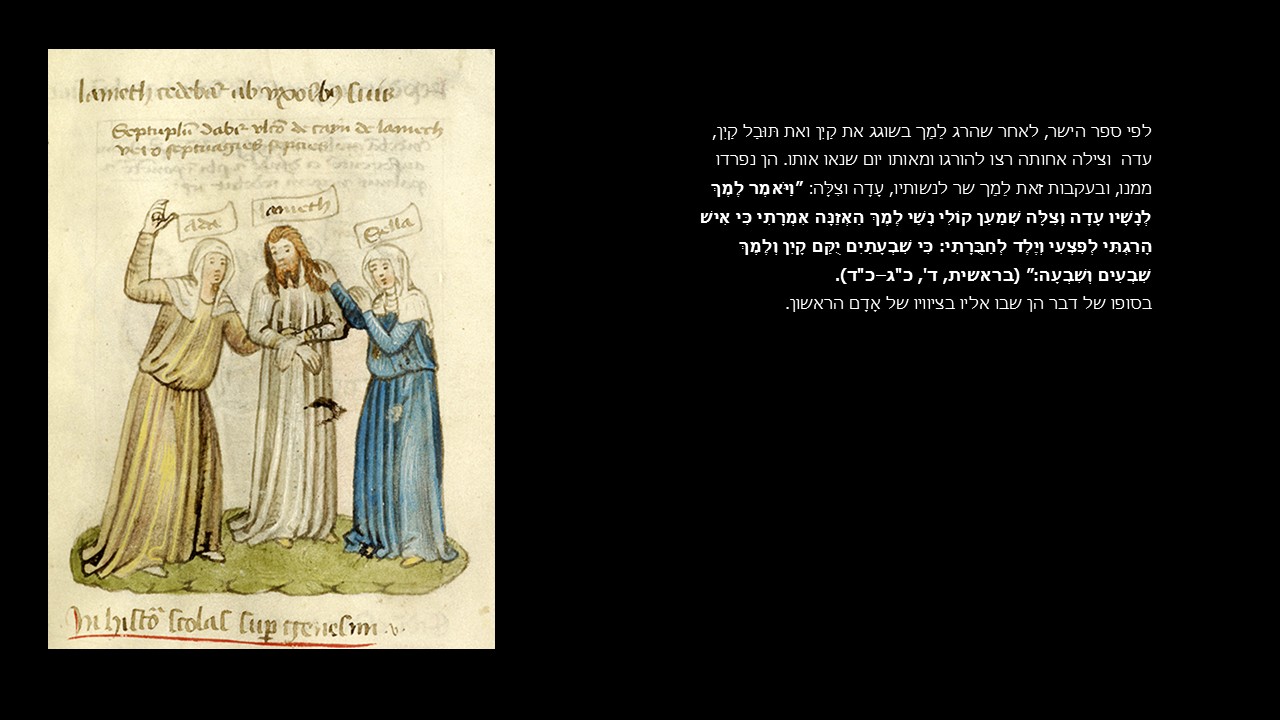 lameth cedebat᷑ ab vxoꝛibꝰ suis
Septuplū dabit᷑ vltō de cayn de lamech
veꝛo septuagies septies
Ada
lameth
Sella
In histoꝛ scolas sup genesim
לפי ספר הישר, לאחר שהרג לֶמֶך בשוגג את קַיִן ואת תּוּבַל קַיִן,
עדה וצילה אחותה רצו להורגו ומאותו יום שנאו אותו. הן נפרדו
ממנו, ובעקבות זאת לֶמֶך שר לנשותיו, עָדָה וצִלָּה: "וַיֹּאמֶר לֶמֶךְ
לְנָשָׁיו עָדָה וְצִלָּה שְׁמַעַן קוֹלִי נְשֵׁי לֶמֶךְ הַאְזֵנָּה אִמְרָתִי כִּי אִישׁ
הָרַגְתִּי לְפִצְעִי וְיֶלֶד לְחַבֻּרָתִי: כִּי שִׁבְעָתַיִם יֻקַּם קָיִן וְלֶמֶךְ
שִׁבְעִים וְשִׁבְעָה:" (בראשית, ד', כ"ג–כ"ד).
בסופו של דבר הן שבו אליו בציוויו של אָדָם הראשון.